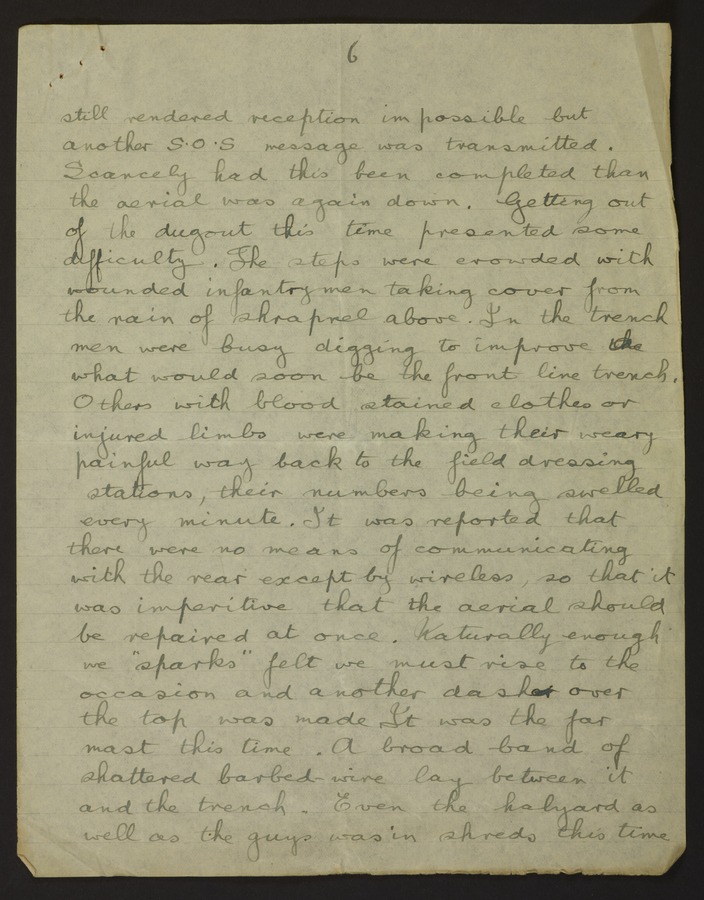 6
still rendered reception impossible but
another S.O.S message was transmitted.
Scarcely had this been completed than
the aerial was again down. Getting out
of the dugout this time presented some
difficulty. The steps were crowded with
wounded infantrymen taking cover from
the rain of shrapnel above. In the trench
men were busy digging to improve
what would soon be the front line trench.
Others with blood stained clothes or
injured limbs were making their weary
painful way back to the field dressing
stations, their numbers being swelled
every minute. It was reported that
there were no means of communicating
with the rear except by wireless, so that it
was imperitive that the aerial should
be repaired at once. Naturally enough
we "sparks" felt we must rise to the
occasion and another dash over
the top was made It was the far
mast this time. A broad band of
shattered barbed-wire lay between it
and the trench. Even the halyard as
well as the guys was in shreds this time